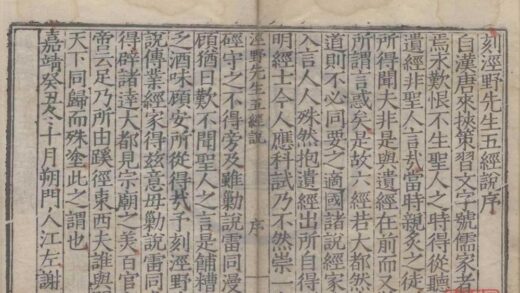 刻涇野先生五經說序
自漢唐來挾策習文字號儒家者
焉永歎恨不生聖人之時得從聽
遺經非聖人言哉當時親炙之徒
所得聞夫非是與遺經在前而又
所謂言惑矣是故六經若大都然
道則不必同要之適國諸說經家
入言人人殊然抱遺經出所自得
明經士今人應科試乃不然崇一
涇野先生五經說 序 一
硜守之不得旁及雖勦說雷同漫
顧猶曰歎不聞聖人之言是餔糟
之酒味顧安所從得哉予刻涇野
說傳業經家得茲意毋勦說雷同
得辟諸達大都見宗廟之美百官
嘗云足乃所由蹊徑東西夫誰與
天下同歸而殊塗此之謂也
嘉靖癸丑冬十月朔門人江左謝